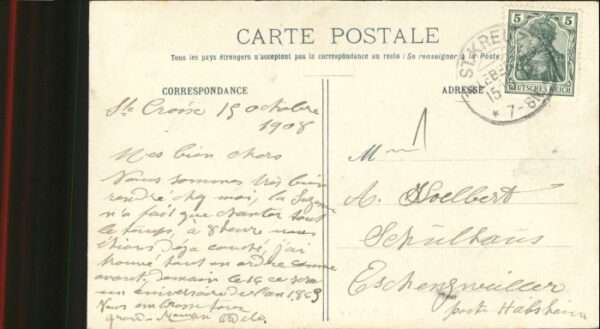 CARTE POSTALE
Tous les pays étrangers n'acceptent pas la correspondance au recto : (Se renseigner à la Poste)
CORRESPONDANCE
ADRESSE
5 5
DEUTSCHES REICH
ST. KREU
LEBE
15
* 7-8N
Ste Croix 15 Octobre
1908
Mes bien chers
Nous sommes très bien
rendré chez moi, la Suzan
n'a fait que chanter tout
le temps, a 8 heure nous
étions déja couché, j'ai
trouvé tout en ordre comme
avant, demain le 16 ce sera
un aniversaire de l'an 18
Nous embrasse tous
grand-Maman
M
A. Hoelbert
Schulhaus
Eschenzwiller
poste Habsheim